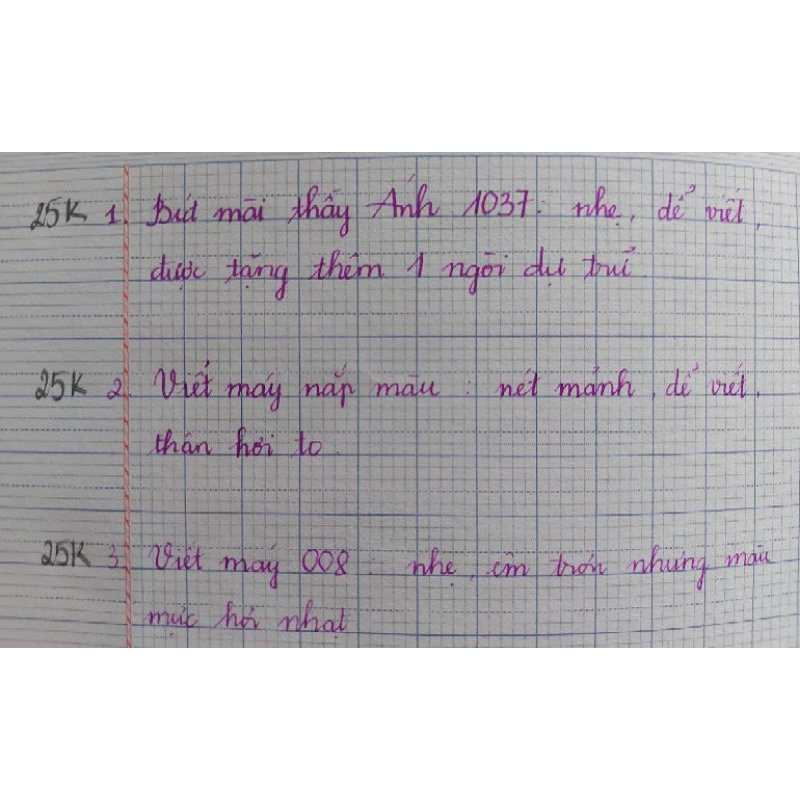 25K 1. Bút mài thầy Ánh 1037: nhẹ, dễ viết,
được tặng thêm 1 ngòi dự trữ.
25K 2. Viết máy nắp màu : nét mảnh, dễ viết,
thân hơi to
25K 3. Viết máy 008 : nhẹ, êm trơn nhưng màu
mực hơi nhạt